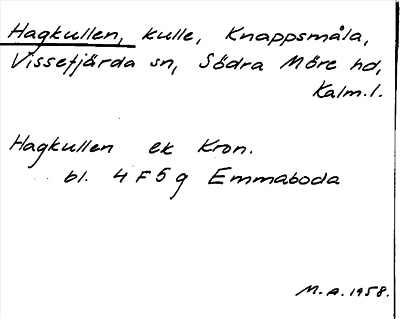 Hagkullen, kulle, Knappsmåla,
Vissefjärda sn, Södra Möre hd,
Kalm.l.
Hagkullen ek Kron.
bl. 4 F 5 g Emmaboda
M.A.1958.